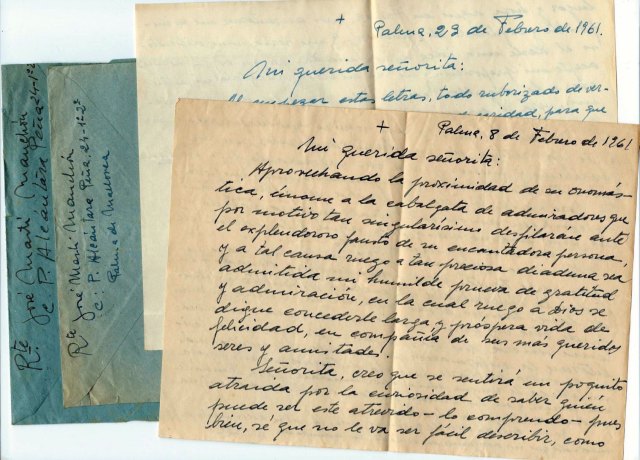 Rte José Martí Manchón
C. P. Alcántara Peña 24-1º-2ª
Rte José Martí Manchón
C. P. Alcántara Peña, 24-1º-2ª
Palma de Mallorca
+
Palma, 23 de Febrero de 1961.
Mi querida señorita:
Al empezar estas letras, todo ruborizado de ver-
para que
+
Palma, 8 de Febrero de 1961
Mi querida señorita:
Aprovechando la proximidad de su onomás-
tica, únome a la cabalgata de admiradores que
por motivo tan singularísimo desfilarán ante
el explendoroso fausto de su encantadora persona,
y a tal causa ruego a tan preciosa diadema sea
admitida mi humilde prueva de gratitud
y admiración, en la cual ruego a Dios se
digne concederle larga y próspera vida de
felicidad, en compañía de sus más queridos
seres y amistades.
Señorita, creo que se sentirá un poquito
atraida por la curiosidad de saber quién
puede ser este atrevido - lo comprendo - pues
bien, sé que no le va ser fácil describir, como